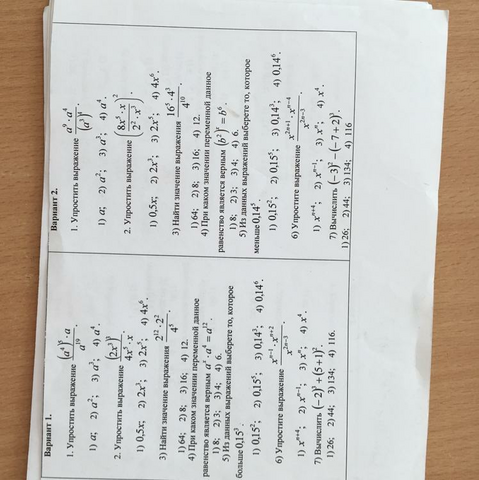 Вариант 1.
1. Упростить выражение (a⁴)⁵ · a / a¹⁹
1) a; 2) a²; 3) a³; 4) a⁴.
2. Упростить выражение (2x³)³ / 4x⁵ · x
1) 0,5x; 2) 2x³; 3) 2x⁵; 4) 4x⁶.
3) Найти значение выражения 2¹² · 2² / 4⁵
1) 64; 2) 8; 3) 16; 4) 12.
4) При каком значении переменной данное
равенство является верным aˣ · a⁴ = a¹²
1) 8; 2) 3; 3) 4; 4) 6.
5) Из данных выражений выберете то, которое
больше 0,15³.
1) 0,15²; 2) 0,15⁵; 3) 0,14³; 4) 0,14⁶.
6) Упростите выражение xⁿ⁻¹ · xⁿ⁺² / x²ⁿ⁻³
1) xⁿ⁺⁴; 2) xⁿ⁻¹; 3) xⁿ; 4) x⁴.
7) Вычислить (−2)³ + (5 + 1)².
1) 26; 2) 44; 3) 134; 4) 116.
Вариант 2.
1. Упростить выражение a⁹ · a⁴ / (a³)⁴
1) a; 2) a²; 3) a³; 4) a⁴.
2. Упростить выражение (8x⁵ · x / 2² · x³)².
1) 0,5x; 2) 2x³; 3) 2x⁵; 4) 4x⁶.
3) Найти значение выражения 16⁵ · 4³ / 4¹⁰
1) 64; 2) 8; 3) 16; 4) 12.
4) При каком значении переменной данное
равенство является верным (b²)ˣ = b⁶
1) 8; 2) 3; 3) 4; 4) 6.
5) Из данных выражений выберете то, которое
меньше 0,14⁵
1) 0,15²; 2) 0,15⁵; 3) 0,14³; 4) 0,14⁶.
6) Упростите выражение x²ⁿ⁺¹ · xⁿ⁻⁴ / x²ⁿ⁻³
1) xⁿ⁺⁴; 2) xⁿ⁻¹; 3) xⁿ; 4) x⁴.
7) Вычислить (−3)² − (−7 + 2)³.
1) 26; 2) 44; 3) 134; 4) 116